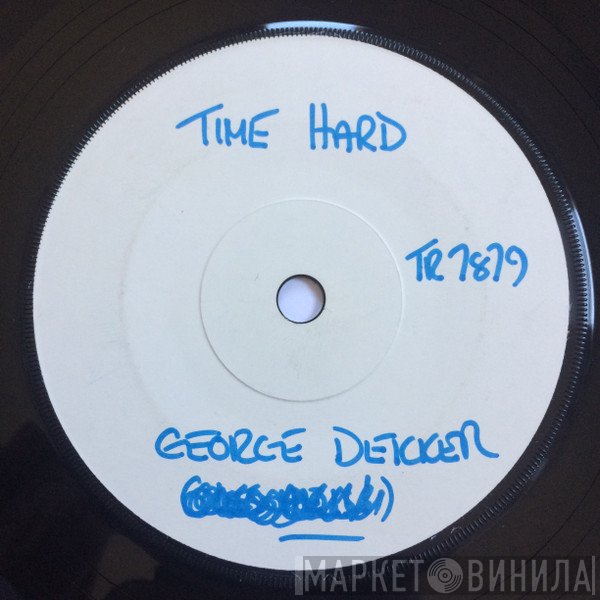 TIME HARD
TR7879
GEORGE DEKKER
МАРКЕТ ВИНИЛА